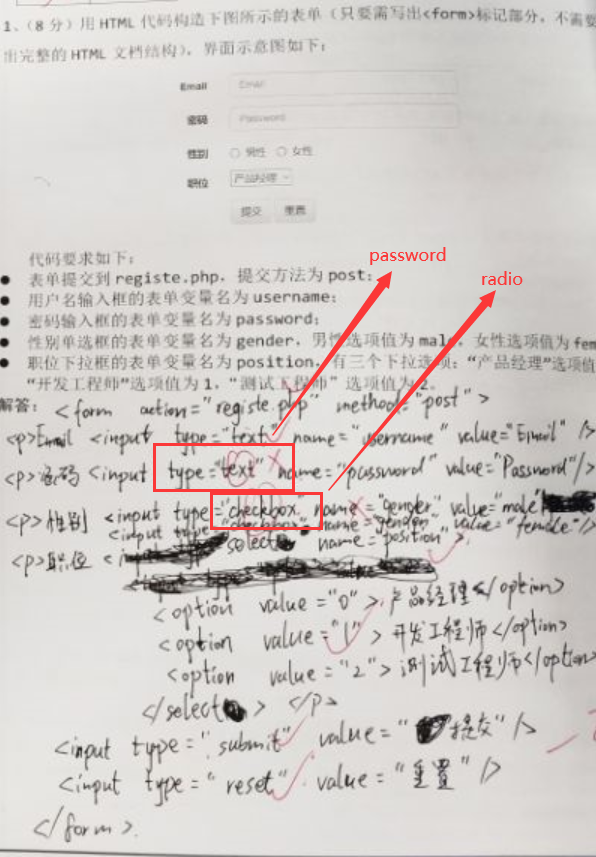 1、(8 分) 用 HTML 代码构造下图所示的表单 (只要需写出<form>标记部分，不需要
出完整的 HTML 文档结构)，界面示意图如下：
Email Email
密码 Password
性别 男性 女性
职位 产品经理
提交 重置
代码要求如下：
password
表单提交到 registe.php，提交方法为 post；
radio
用户名输入框的表单变量名为 username；
密码输入框的表单变量名为 password；
性别单选框的表单变量名为 gender，男性选项值为 mal，女性选项值为 fem
职位下拉框的表单变量名为 position，有三个下拉选项："产品经理"选项值
"开发工程师"选项值为 1，"测试工程师" 选项值为 2。
解答：<form action="registe.php" method="post">
<p>Email <input type="text" name="username" value="Email" />
<p>密码 <input type="text" name="password" value="Password"/>
<p>性别 <input type="checkbox" name="gender" value="male"
<input type="checkbox" name="gender" value="female"/>
<p>职位 < select name="position">
<option value="0">产品经理</option>
<option value="1">开发工程师</option>
<option value="2">测试工程师</option>
</select> </p>
<input type="submit" value="提交"/>
<input type="reset" value="重置"/>
</form>.